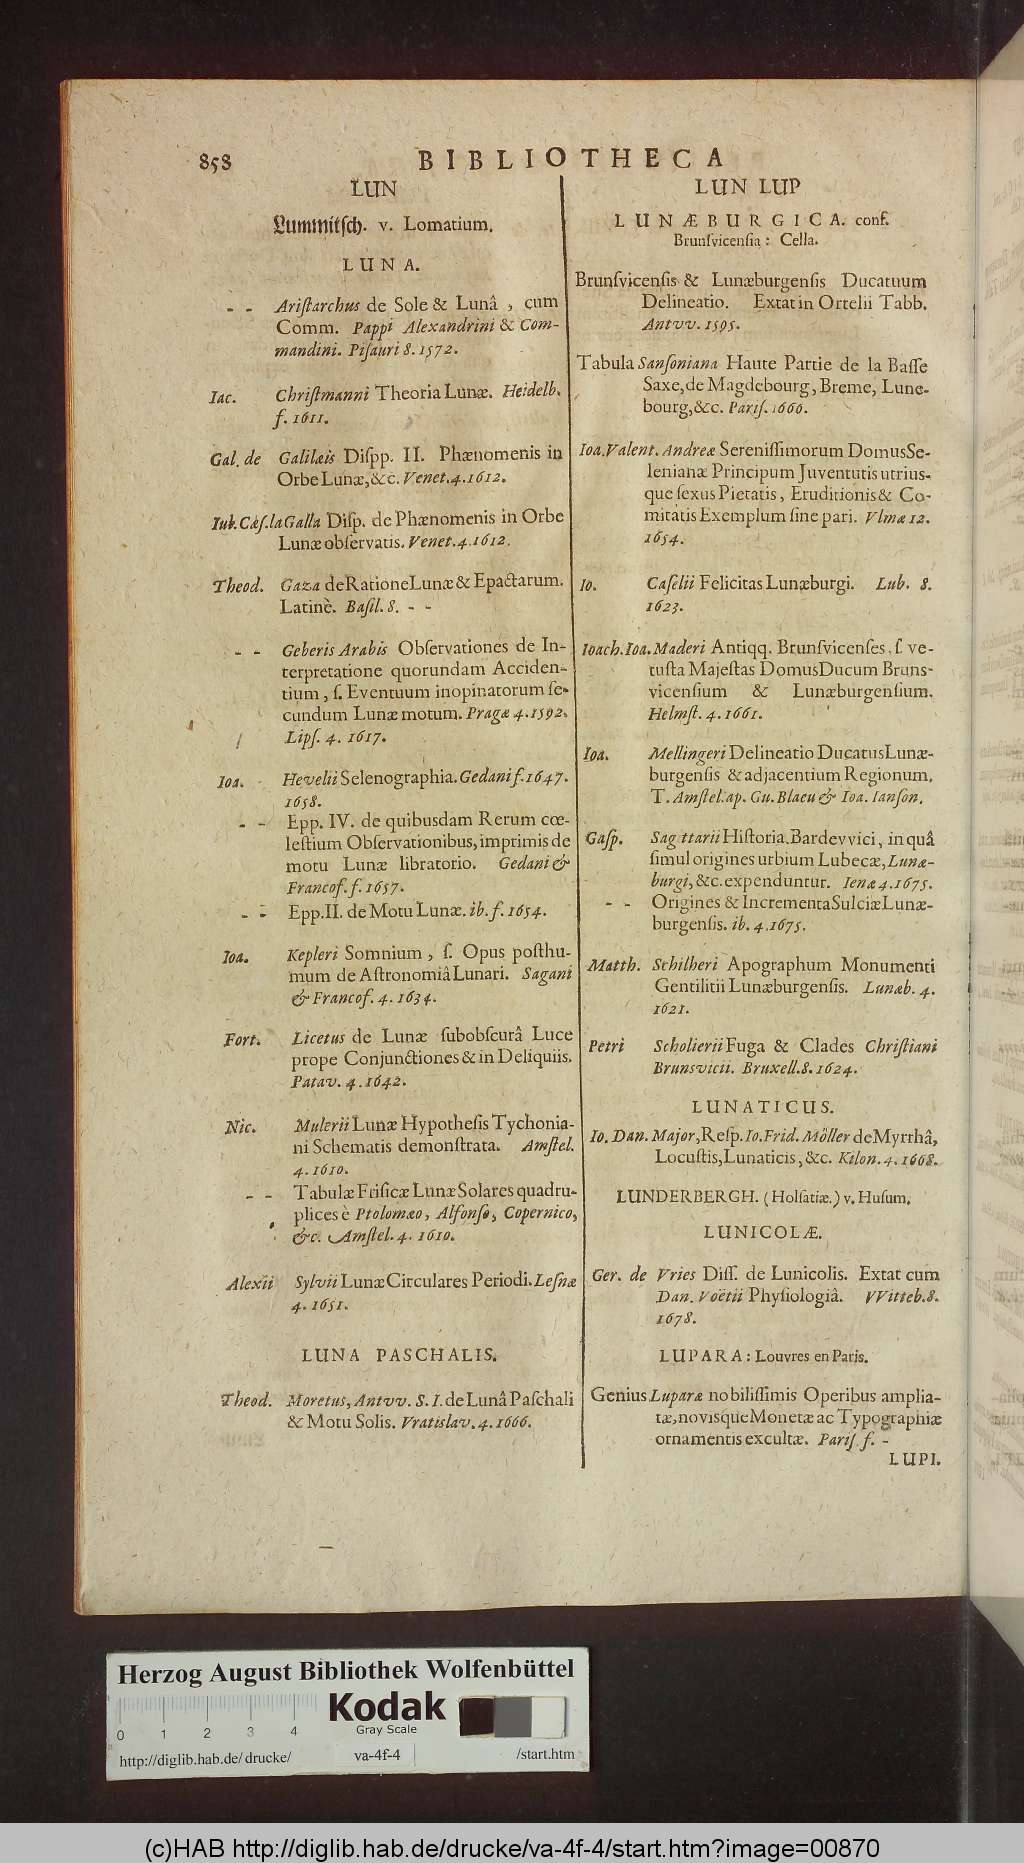 858
BIBLIOTHECA
LUN
Lummitſch. v. Lomatium.
LUNA.
- - Ariſtarchus de Sole & Lunâ, cum
Comm. Pappi Alexandrini & Com-
mandini. Piſauri 8. 1572.
Iac. Chriſtmanni Theoria Lunæ. Heidelb.
f. 1611.
Gal. de Galilæis Diſpp. II. Phænomenis in
Orbe Lunæ, &c. Venet. 4. 1612.
Iul. Cæſ. la Galla Diſp. de Phænomenis in Orbe
Lunæ obſervatis. Venet. 4. 1612.
Theod. Gaza de Ratione Lunæ & Epactarum.
Latinè. Baſil. 8. - -
- - Geberis Arabis Obſervationes de In-
terpretatione quorundam Acciden-
tium, ſ. Eventuum inopinatorum ſe-
cundum Lunæ motum. Pragæ 4. 1592.
Lipſ. 4. 1617.
Ioa. Hevelii Selenographia. Gedani f. 1647.
1658.
- - Epp. IV. de quibusdam Rerum cœ-
leſtium Obſervationibus, imprimis de
motu Lunæ libratorio. Gedani &
Francof. f. 1657.
- - Epp. II. de Motu Lunæ. ib. f. 1654.
Ioa. Kepleri Somnium, ſ. Opus poſthu-
mum de Aſtronomiâ Lunari. Sagani
& Francof. 4. 1634.
Fort. Licetus de Lunæ ſubobſcurâ Luce
prope Conjunctiones & in Deliquiis.
Patav. 4. 1642.
Nic. Mulerii Lunæ Hypotheſis Tychonia-
ni Schematis demonſtrata. Amſtel.
4. 1610.
- - Tabulæ Friſicæ Lunæ Solares quadru-
plices è Ptolomæo, Alfonſo, Copernico,
&c. Amſtel. 4. 1610.
Alexii Sylvii Lunæ Circulares Periodi. Leſnæ
4. 1651.
LUNA PASCHALIS.
Theod. Moretus, Antvv. S. I. de Lunâ Paſchali
& Motu Solis. Vratislav. 4. 1666.
LUN LUP
LUNÆBURGICA. conf.
Brunſvicenſia: Cella.
Brunſvicenſis & Lunæburgenſis Ducatuum
Delineatio. Extat in Ortelii Tabb.
Antvv. 1595.
Tabula Sanſoniana Haute Partie de la Baſſe
Saxe, de Magdebourg, Breme, Lune-
bourg, &c. Pariſ. 1660.
Ioa. Valent. Andreæ Sereniſſimorum Domus Se-
lenianæ Principum Juventutis utrius-
que ſexus Pietatis, Eruditionis & Co-
mitatis Exemplum ſine pari. Vlmæ 12.
1654.
Io. Caſelii Felicitas Lunæburgi. Lub. 8.
1623.
Ioach. Ioa. Maderi Antiqq. Brunſvicenſes, ſ. ve-
tuſta Majeſtas Domus Ducum Bruns-
vicenſium & Lunæburgenſium.
Helmſt. 4. 1661.
Ioa. Mellingeri Delineatio Ducatus Lunæ-
burgenſis & adjacentium Regionum.
T. Amſtel. ap. Gu. Blaeu & Ioa. Ianſon.
Gaſp. Sagittarii Hiſtoria Bardevvici, in quâ
ſimul origines urbium Lubecæ, Lunæ-
burgi, &c. expenduntur. Ienæ 4. 1675.
- - Origines & Incrementa Sulciæ Lunæ-
burgenſis. ib. 4. 1675.
Matth. Schilheri Apographum Monumenti
Gentilitii Lunæburgenſis. Lunæb. 4.
1621.
Petri Scholierii Fuga & Clades Chriſtiani
Brunsvicii. Bruxell. 8. 1624.
LUNATICUS.
Io. Dan. Major, Reſp. Io. Frid. Möller de Myrrhâ,
Locuſtis, Lunaticis, &c. Kilon. 4. 1668.
LUNDERBERGH. (Holſatiæ.) v. Huſum.
LUNICOLÆ.
Ger. de Vries Diſſ. de Lunicolis. Extat cum
Dan. Voëtii Phyſiologiâ. VVitteb. 8.
1678.
LUPARA: Louvres en Paris.
Genius Luparæ nobiliſſimis Operibus amplia-
tæ, novisque Monetæ ac Typographiæ
ornamentis excultæ. Pariſ. f. -
LUPI.
Herzog August Bibliothek Wolfenbüttel
Kodak
Gray Scale
0 1 2 3 4
http://diglib.hab.de/drucke/ va-4f-4 /start.htm
(c)HAB http://diglib.hab.de/drucke/va-4f-4/start.htm?image=00870